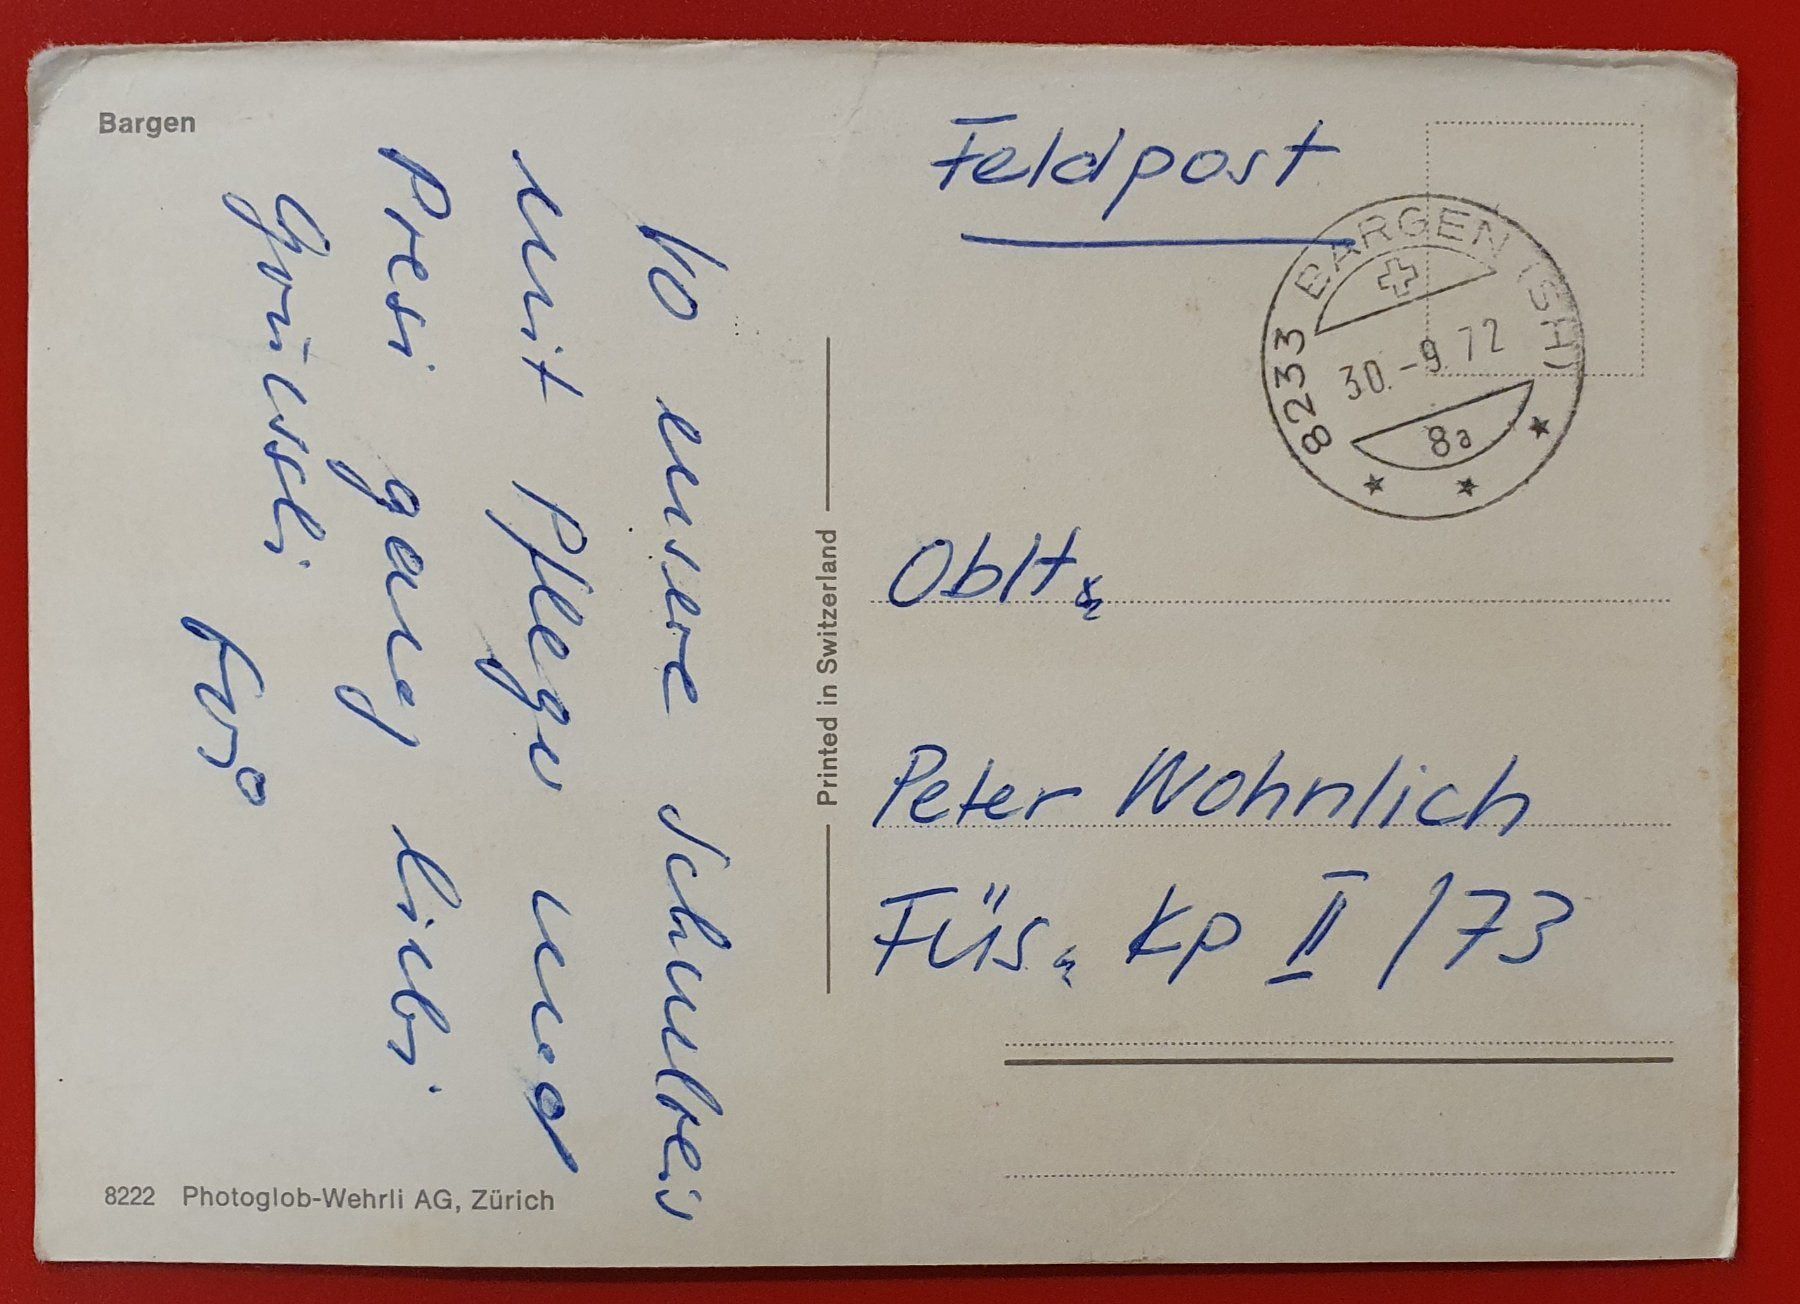 Bargen
Vo eusere Schuelreis
mit Pfleger und
Presi ganz liebi
Grüessli
8222 Photoglob-Wehrli AG, Zürich
Printed in Switzerland
Feldpost
8233 BARGEN (SH)
30.-9.72
8a
Oblt.
Peter Wohnlich
Füs. Kp II /73